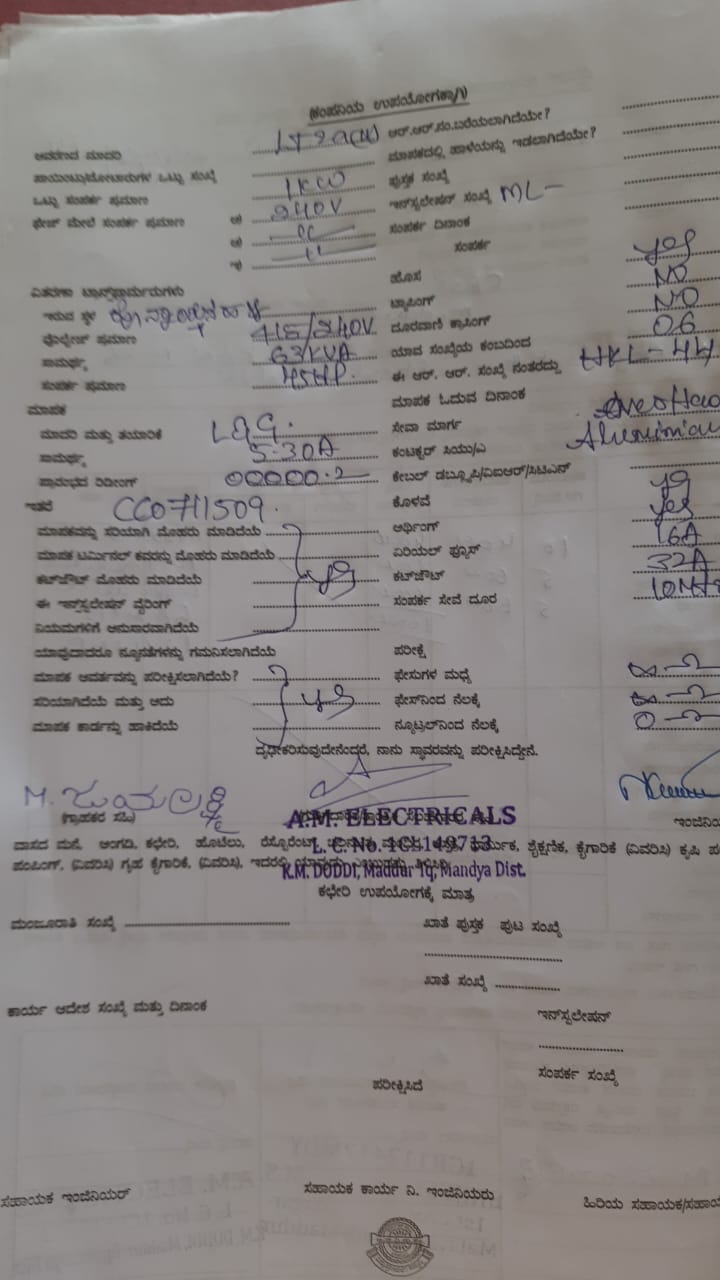 (ಕಂಪನಿಯ ಉಪಯೋಗಕ್ಕಾಗಿ)
ಮಾದರಿ LT 2A(ii) ಆರ್.ಆರ್.ಸಂ.ಬರೆಯಲಾಗಿದೆಯೇ?
ಒಟ್ಟು ಸಂಖ್ಯೆ ಮಾಪಕದಲ್ಲಿ ಹಾಳೆಯನ್ನು ಇಡಲಾಗಿದೆಯೇ?
ಒಟ್ಟು ಸಂಪರ್ಕ ಪ್ರಮಾಣ 1KW ಪುಸ್ತಕ ಸಂಖ್ಯೆ
ಫೇಸ್ ಮೇಲೆ ಸಂಪರ್ಕ ಪ್ರಮಾಣ 240V ಇನ್‌ಸ್ಟಲೇಷನ್ ಸಂಖ್ಯೆ ML-
ಸಂಪರ್ಕ ದಿನಾಂಕ
ಸಂಪರ್ಕ
ಹೊಸ yes
ವಿತರಣಾ ಟ್ರಾನ್ಸ್‌ಫಾರ್ಮರುಗಳು
ಇರುವ ಸ್ಥಳ ಟ್ಯಾಪಿಂಗ್ NO
ವೋಲ್ಟೇಜ್ ಪ್ರಮಾಣ 415/240V ದೂರವಾಣಿ ಕ್ರಾಸಿಂಗ್ NO
ಸಾಮರ್ಥ್ಯ 63KVA ಯಾವ ಸಂಖ್ಯೆಯ ಕಂಬದಿಂದ 06
ಸಂಪರ್ಕ ಪ್ರಮಾಣ 45HP ಈ ಆರ್. ಆರ್. ಸಂಖ್ಯೆ ನಂತರದ್ದು HKL-44
ಮಾಪಕ ಮಾಪಕ ಓದುವ ದಿನಾಂಕ
ಮಾದರಿ ಮತ್ತು ತಯಾರಿಕೆ L&G. ಸೇವಾ ಮಾರ್ಗ
ಸಾಮರ್ಥ್ಯ 5-30A ಕಂಟಕ್ಟರ್ ಸಿಯು/ಎ
ಪ್ರಾರಂಭದ ರಿಡಿಂಗ್ 00000.2 ಕೇಬಲ್ ಡಬ್ಲೂಪಿ/ಐಆರ್/ಸಿಟಿಎನ್
ಇತರೆ CC0711509. ಕೊಳವೆ yes
ಮಾಪಕವನ್ನು ಸರಿಯಾಗಿ ಮೊಹರು ಮಾಡಿದೆಯೆ ಅರ್ಥಿಂಗ್ yes
ಮಾಪಕ ಟರ್ಮಿನಲ್ ಕವರನ್ನು ಮೊಹರು ಮಾಡಿದೆಯೆ ಏರಿಯಲ್ ಫ್ಯೂಸ್ 16A
ಕಟ್‌ಔಟ್ ಮೊಹರು ಮಾಡಿದೆಯೆ yes ಕಟ್‌ಔಟ್ 32A
ಈ ಇನ್‌ಸ್ಟಲೇಷನ್ ವೈರಿಂಗ್ ಸಂಪರ್ಕ ಸೇವೆ ದೂರ
ನಿಯಮಗಳಿಗೆ ಅನುಸಾರವಾಗಿದೆಯೆ
ಯಾವುದಾದರೂ ನ್ಯೂನತೆಗಳನ್ನು ಗಮನಿಸಲಾಗಿದೆಯೆ ಪರೀಕ್ಷೆ
ಮಾಪಕ ಆವರ್ತವನ್ನು ಪರೀಕ್ಷಿಸಲಾಗಿದೆಯೆ? ಫೇಸುಗಳ ಮಧ್ಯೆ ∞-Ω
ಸರಿಯಾಗಿದೆಯೆ ಮತ್ತು ಅದು yes ಫೇಸ್‌ನಿಂದ ನೆಲಕ್ಕೆ ∞-Ω
ಮಾಪಕ ಕಾರ್ಡನ್ನು ಹಾಕಿದೆಯೆ ನ್ಯೂಟ್ರಲ್‌ನಿಂದ ನೆಲಕ್ಕೆ 0-Ω
ದೃಢೀಕರಿಸುವುದೇನೆಂದರೆ, ನಾನು ಸ್ಥಾವರವನ್ನು ಪರೀಕ್ಷಿಸಿದ್ದೇನೆ.
M. ಜಯಲಕ್ಷ್ಮಿ
(ಗ್ರಾಹಕರ ಸಹಿ) A.M. ELECTRICALS
ವಾಸದ ಮನೆ, ಅಂಗಡಿ, ಕಛೇರಿ, ಹೊಟೆಲು, ರೆಸ್ಟೋರೆಂಟ್, L.C. No. ಶೈಕ್ಷಣಿಕ, ಕೈಗಾರಿಕೆ (ವಿವರಿಸಿ) ಕೃಷಿ
ಪಂಪಿಂಗ್, (ವಿವರಿಸಿ) ಗೃಹ ಕೈಗಾರಿಕೆ, (ವಿವರಿಸಿ), K.M. DODDI, Maddur Tq, Mandya Dist.
ಕಛೇರಿ ಉಪಯೋಗಕ್ಕೆ ಮಾತ್ರ
ಮಂಜೂರಾತಿ ಸಂಖ್ಯೆ ಖಾತೆ ಪುಸ್ತಕ ಪುಟ ಸಂಖ್ಯೆ
ಖಾತೆ ಸಂಖ್ಯೆ
ಕಾರ್ಯ ಆದೇಶ ಸಂಖ್ಯೆ ಮತ್ತು ದಿನಾಂಕ ಇನ್‌ಸ್ಟಲೇಷನ್
ಸಂಪರ್ಕ ಸಂಖ್ಯೆ
ಪರೀಕ್ಷಿಸಿದೆ
ಸಹಾಯಕ ಇಂಜಿನಿಯರ್ ಸಹಾಯಕ ಕಾರ್ಯ ನಿ. ಇಂಜಿನಿಯರು ಹಿರಿಯ ಸಹಾಯಕ